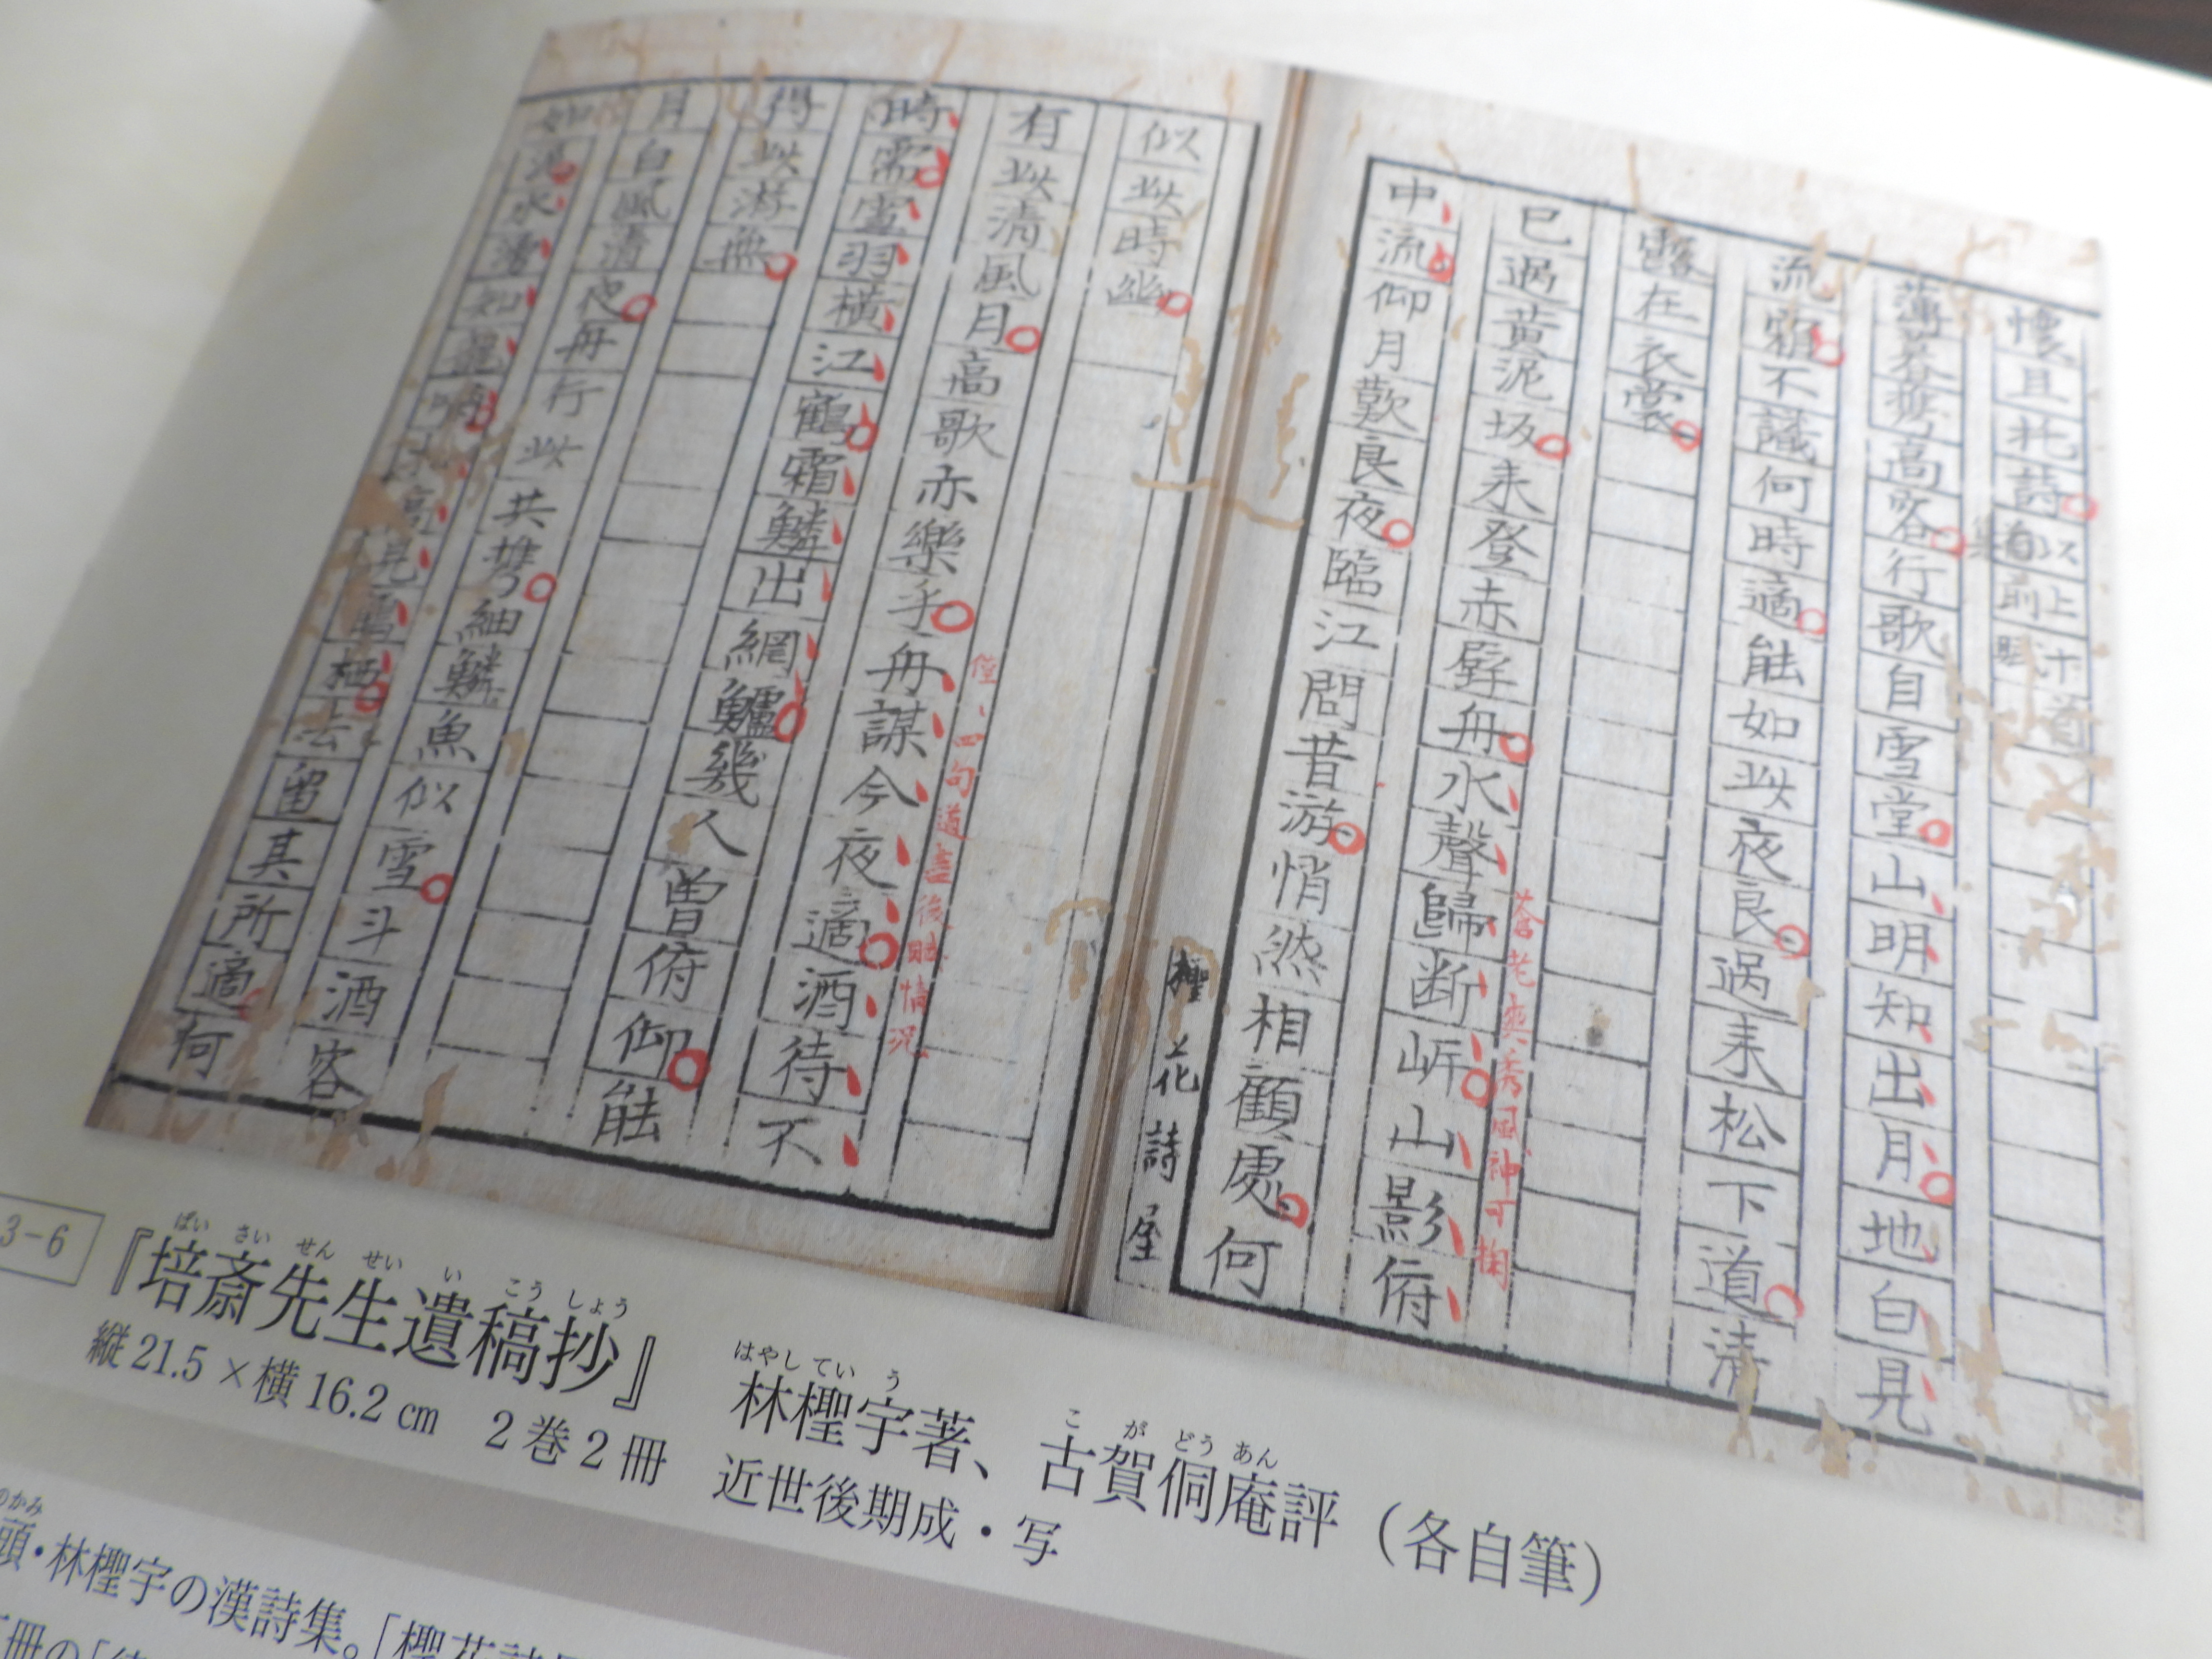 懷且托詩
以上十首
自前賦
薄暮携高客行歌自雪堂山明知出月地白見
流霜不識何時適能如此夜良過来松下道清
露在衣裳
已過黄泥坂来登赤壁舟水聲歸断岸山影俯
蒼老爽秀風神可掬
中流仰月歎良夜臨江問昔游悄然相顧處何
檉花詩屋
似此時幽
有此清風月高歌亦樂乎舟謀今夜適酒待不
四句道盡後賦情況
時需雪羽横江鶴霜鱗出網鱸幾人曽俯仰能
得此游無
月白風清夜舟行此共携細鱗魚似雪斗酒客
如水知高見栖去留其所適何
3-6
ばいさいせんせいいこうしょう
『培斎先生遺稿抄』
はやしていう こがどうあん
林檉宇著、古賀侗庵評（各自筆）
縦21.5×横16.2cm 2巻2冊 近世後期成・写
のかみ
頭・林檉宇の漢詩集。「檉花詩
冊の「